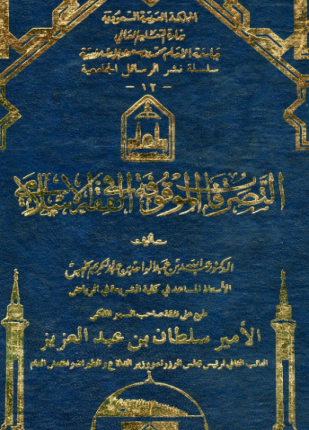 المملكة العربية السعودية
وزارة التعليم العالي
جامعة الإمام محمد بن سعود الإسلامية
سلسلة نشر الرسائل الجامعية
- ١٢ -
التصرفات الموقوفة في الفقه الإسلامي
تأليف
الدكتور عبد الواحد بن
الأستاذ المساعد في كلية الشريعة في الرياض
طبع على نفقة صاحب السمو الملكي
الأمير سلطان بن عبد العزيز
النائب الثاني لرئيس مجلس الوزراء ووزير الدفاع والطيران والمفتش العام